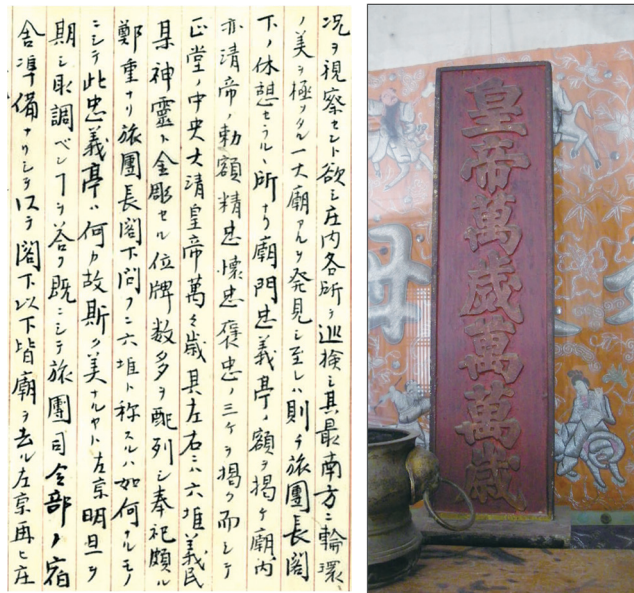 況ヲ視察セント欲シ庄内各所ヲ巡検シ其最南方ニ輪環
ノ美ヲ極タル一大廟アルヲ発見シ至レハ則チ旅團長閣
下ノ休憩セラルヽ所ナリ廟門忠義亭ノ額ヲ掲ケ廟内
亦清帝ノ勅額精忠懐忠褒忠ノ三ケヲ掲ク而シテ
正堂ノ中央大清皇帝萬々歳其左右ニハ六堆義民
某神靈ト金彫セル位牌数多ヲ配列シ奉祀頗ル
鄭重ナリ旅團長閣下問フニ六堆ト称スルハ如何ナルモノ
ニシテ此忠義亭ハ何カ故斯ク美ナルヤト左京明旦ヲ
期シ取調ベシヿヲ答フ既ニシテ旅團司令部ノ宿
舎準備ナリシヲ以テ閣下以下皆廟ヲ去ル左京再ヒ庄
皇帝萬歳萬萬歳